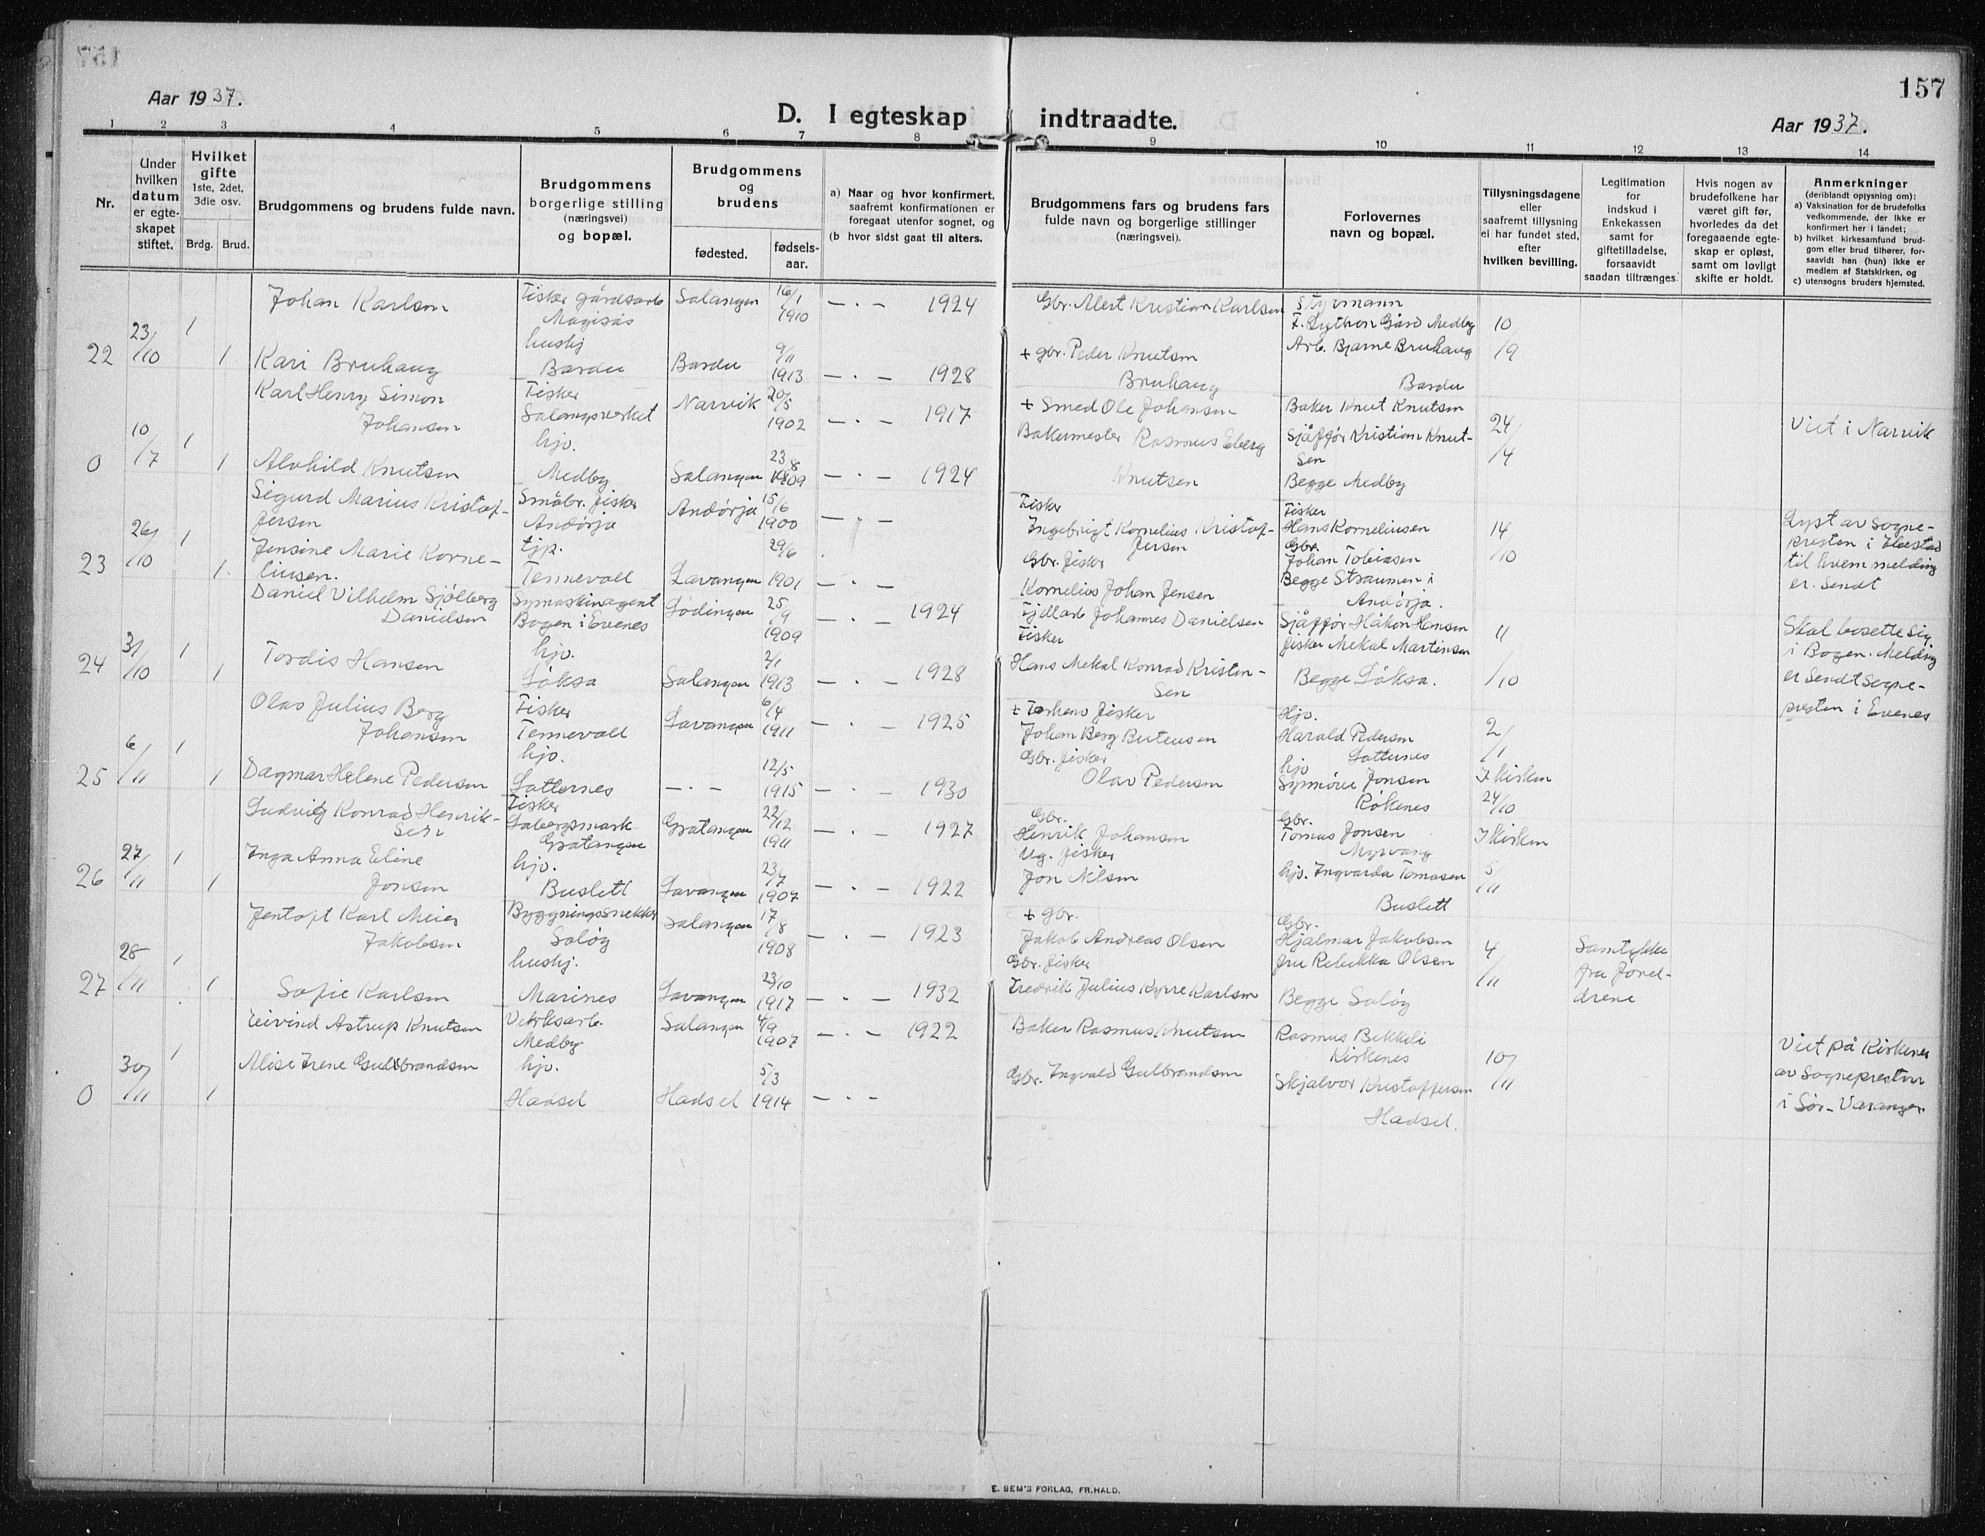 157
Aar 1937.
D. I egteskap indtraadte.
Aar 1937.
1 2 3 4 5 6 7 8 9 10 11 12 13 14
Nr.
Under hvilken datum er egte-skapet stiftet.
Hvilket gifte 1ste, 2det, 3die osv.
Brdg. Brud.
Brudgommens og brudens fulde navn.
Brudgommens borgerlige stilling (næringsvei) og bopæl.
Brudgommens og brudens
fødested. fødsels-aar.
a) Naar og hvor konfirmert, saafremt konfirmationen er foregaat utenfor sognet, og
(b hvor sidst gaat til alters.
Brudgommens fars og brudens fars fulde navn og borgerlige stillinger (næringsvei).
Forlovernes navn og bopæl.
Tillysningsdagene eller saafremt tillysning ei har fundet sted, efter hvilken bevilling.
Legitimation for indskud i Enkekassen samt for giftetilladelse, forsaavidt saadan tiltrænges.
Hvis nogen av brudefolkene har været gift før, hvorledes da det foregaaende egte-skap er opløst, samt om lovligt skifte er holdt.
Anmerkninger (deriblandt opjysning om):
a) Vaksination for de brudefolks vedkommende, der ikke er konfirmert her i landet;
b) hvilket kirkesamfund brud-gom eller brud tilhører, for-saavidt han (hun) ikke er medlem af Statskirken, og
c) utensogns bruders hjemsted.
22 23/10 1 Johan Karlsen Fisker gårdsarb Salangen 16/1 1910 — · — 1924 Gbr. Alert Kristian Karlsen Styrmann
10/9
1 Kari Bruhaug hushj Bardu Bardu 9/11 1913 — · — 1928 + gbr. Peder Knutsen Bruhaug Arb. Bjarne Bruhaug Bardu
0 10/7 1 Karl Henry Simon Johansen Fisker Salangsverket Narvik 20/5 1902 — · — 1917 + Smed Ole Johansen Baker Knut Knutsen 24/4 Viet i Narvik
1 Alvhild Knutsen hjv. Medby Salangen 23/8 1909 — · — 1924 Bakermester Rasmus Eberg Knutsen Sjåfför Kristian Knutsen Begge Medby
23 26/10 1 Sigurd Marius Kristof-fersen Småbr. fisker Andørja Andørja 15/6 1900 — · — Fisker Ingebrigt Kornelius Kristof-fersen Fisker Hans Korneliusen 14/10 Lyst av sogne-presten i Ibestad til hvem melding er sendt
1. Jensine Marie Korne-liusen. tjp. Tennevoll Lavangen 29/6 1901 — · — Gbr. fisker Kornelius Johan Jensen Gbr. Johan Tobiasen Begge Straumen i Andørja.
24 31/10 1 Daniel Vilhelm Sjölberg Danielsen Symaskinagent Bogen i Evenes Lødingen 25/9 1909 — · — 1924 Fjellarb Johannes Danielsen Sjåfför Håkon Hansen 11/10 Skal bosette sig i Bogen. Melding er sendt Sogne-presten i Evenes
1 Tordis Hansen hjv. Løksa Salangen 2/1 1913 — · — 1928 Fisker Hans Mekal Konrad Kristen-sen fisker Mekal Martinsen Begge Løksa.
25 6/11 1 Olav Julius Berg Johansen Fisker Tennevoll Lavangen 6/4 1911 — · — 1925 + fisker Johan Berg Hjv. Harald Pedersen Solternes 2/1 I kirken
1 Dagmar Helene Pedersen hjv. Solternes — · — 12/5 1915 — · — 1930 Gbr. fisker Olav Pedersen hjv Synnöve Jonsen Røkenes
26 27/11 1 Ludvig Konrad Henrik-sen Fisker Gratangen Gratangen 22/12 1911 — · — 1927 Gbr. Henrik Johansen Gbr. Tomas Jonsen Myrvang 24/10 I kirken
1 Inga Anna Eline Jonsen hjv. Buslett Lavangen 23/7 1907 — · — 1922 Ug. fisker Jon Nilsen hjv. Ingvarda Tomasen Buslett 5/11
27 28/11 1 Jentoft Karl Meier Jakobsen Bygningssnekker Saløy Salangen 17/8 1908 — · — 1923 + gbr. Jakob Andreas Olsen Gbr. Hjalmar Jakobsen 4/11 Samtykke fra forel-drene
1 Sofie Karlsen hushj. Marines Lavangen 23/10 1917 — · — 1932 Gbr. fisker Fredrik Julius Kyrre Karlsen fru Rebekka Olsen Begge Saløy
0 30/11 1 Eivind Astrup Knutsen Verksarb. Medby Salangen 4/9 1907 — · — 1922 Baker Rasmus Knutsen Rasmus Bekkeli Kirkenes 10/11 Viet på Kirkenes av Sognepresten i Sør-Varanger
1 Alise Irene Gulbrandsen hjv. Hadsel Hadsel 5/3 1914 — · — Gbr. Ingvald Gulbrandsen Skjalvor Kristoffersen Hadsel.
E. SEM'S FORLAG, FR.HALD.